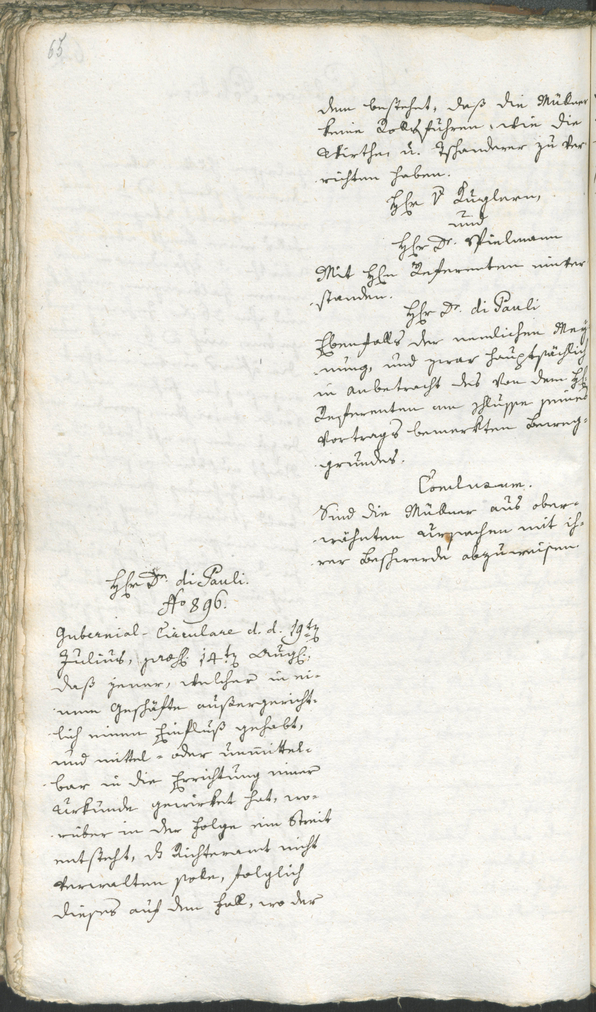 65
dem bestehet, daß die Mükner
keine Robfuhren, wie die
Wirthe, u. Tschanderer zu ver-
richten haben.
Hr v Kuglern,
und
Hr Dr. Spielmann
Mit Hhn Referenten einver-
standen.
Hr Dr. di Pauli
Ebenfalls der nemlichen Mey-
nung, und zwar hauptsächlich
in anbetracht des von dem H
Referenten am schlusse seines
Vortrags bemerkten Beweg-
grundes.
Conclusum.
Sind die Mükner aus ober-
wähnten Ursachen mit ih-
rer Beschwerde abzuweisen
Hhr Dr. di Pauli.
No 896.
Gubernial-Circulare d. d. 19ten
Julius, praes. 14ten Aug.,
daß jener, welcher in ei-
nem Geschäfte außergericht-
lich einen Einfluß gehabt,
und mittel- oder unmittel-
bar in die Errichtung einer
Urkunde gewirket hat, wo-
rüber in der Folge ein Streit
entsteht, das Richteramt nicht
verwalten solle, folglich
dieses auf den Fall, wo der